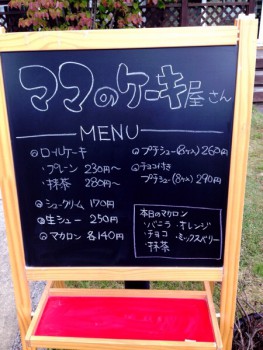 ママのケーキ屋さん
MENU
ロールケーキ
・プレーン 230円~
・抹茶 280円~
シュークリーム 170円
生シュー 250円
マカロン 各140円
プチシュー(8ケ入) 260円
チョコ付き
プチシュー(8ケ入) 290円
本日のマカロン
・バニラ ・オレンジ
・チョコ ・ミックスベリー
・抹茶